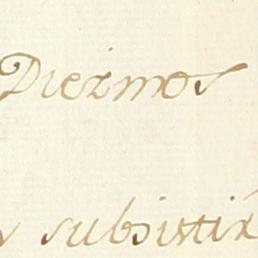 Diezmos
subsistir